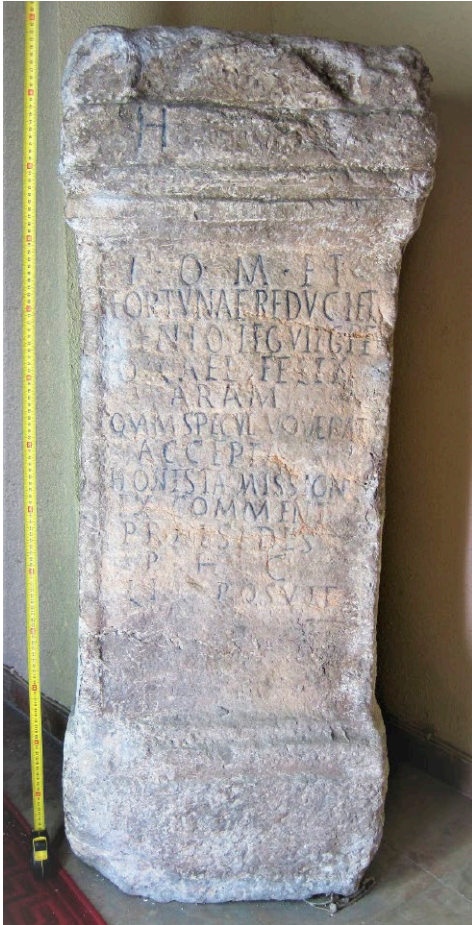 H
I · O · M · ET
FORTVNAE REDVCI ET
GENIO LEG VII G F
AEL FELIX
ARAM
QVAM SPECVL VOVERAT
ACCEPT
HONESTA MISSION
EX COMMENT
PRAESIDES
P H C
POSVIT